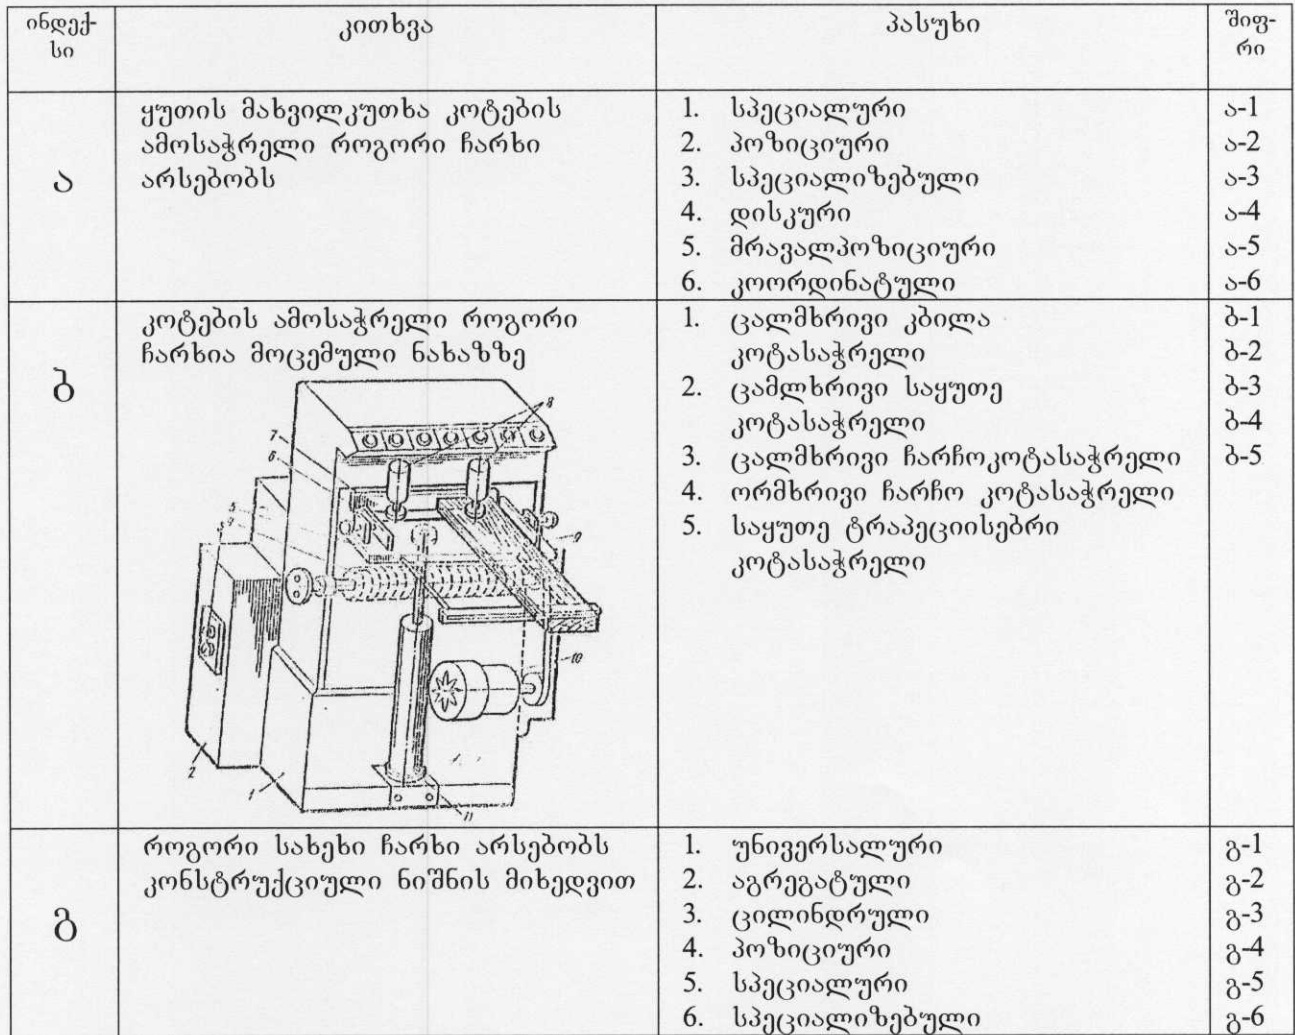 ინდექ-
სი
კითხვა
პასუხი
შიფ-
რი
ა
ყუთის მახვილკუთხა კოტების
ამოსაჭრელი როგორი ჩარხი
არსებობს
1. სპეციალური
2. პოზიციური
3. სპეციალიზებული
4. დისკური
5. მრავალპოზიციური
6. კოორდინატული
ა-1
ა-2
ა-3
ა-4
ა-5
ა-6
ბ
კოტების ამოსაჭრელი როგორი
ჩარხია მოცემული ნახაზზე
8
7
6
5
4
3
9
10
2
1
11
1. ცალმხრივი კბილა
კოტასაჭრელი
2. ცამლხრივი საყუთე
კოტასაჭრელი
3. ცალმხრივი ჩარჩოკოტასაჭრელი
4. ორმხრივი ჩარჩო კოტასაჭრელი
5. საყუთე ტრაპეციისებრი
კოტასაჭრელი
ბ-1
ბ-2
ბ-3
ბ-4
ბ-5
გ
როგორი სახეხი ჩარხი არსებობს
კონსტრუქციული ნიშნის მიხედვით
1. უნივერსალური
2. აგრეგატული
3. ცილინდრული
4. პოზიციური
5. სპეციალური
6. სპეციალიზებული
გ-1
გ-2
გ-3
გ-4
გ-5
გ-6